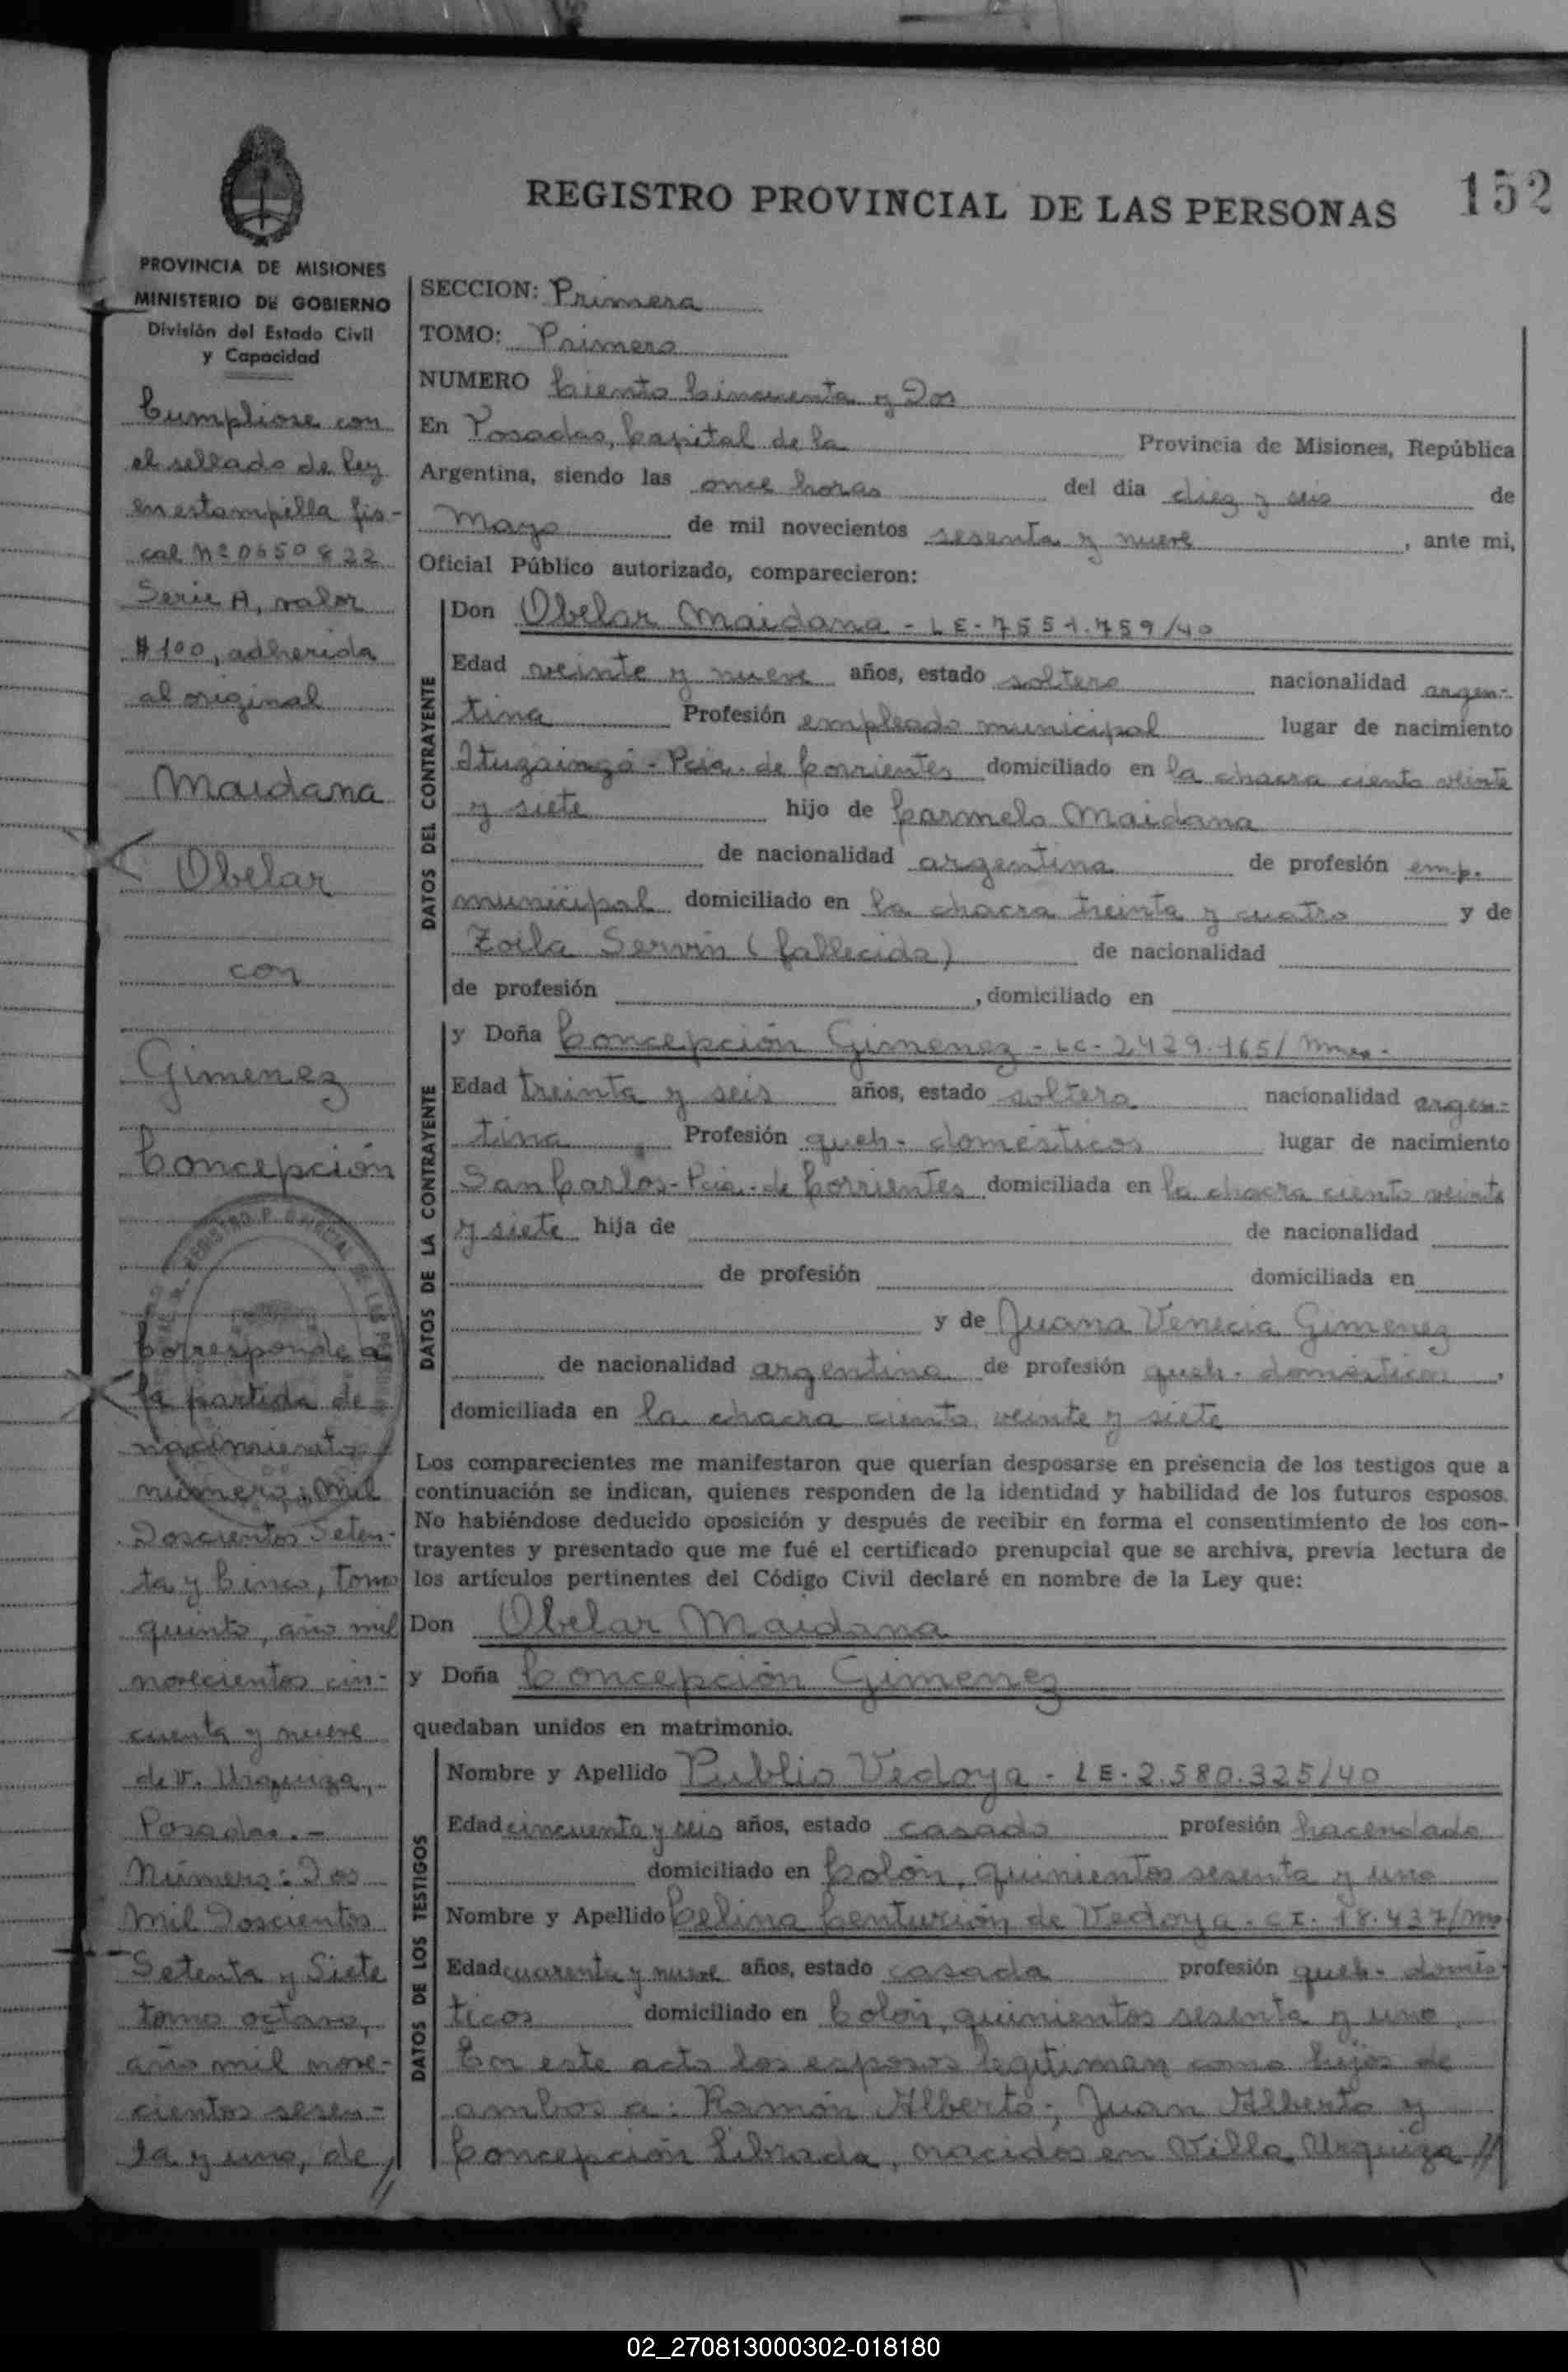 152
REGISTRO PROVINCIAL DE LAS PERSONAS
PROVINCIA DE MISIONES
MINISTERIO DE GOBIERNO
División del Estado Civil
y Capacidad
Cumpliose con
el sellado de ley
en estampilla fis-
cal Nº 0650822
Serie A, valor
$ 100, adherida
al original
Maidana
Obelar
con
Gimenez
Concepción
Corresponde a
la partida de
nacimiento
número: Mil
Doscientos Seten-
ta y Cinco, Tomo
quinto, año mil
novecientos cin-
cuenta y nueve
de V. Urquiza,
Posadas.-
Número: Dos
Mil Doscientos
Setenta y Siete
tomo octavo,
año mil nove-
cientos sesen-
ta y uno, de //
SECCION: Primera
TOMO: Primero
NUMERO Ciento Cincuenta y Dos
En Posadas, Capital de la Provincia de Misiones, República
Argentina, siendo las once horas del día diez y seis de
Mayo de mil novecientos sesenta y nueve, ante mi,
Oficial Público autorizado, comparecieron:
DATOS DEL CONTRAYENTE
Don Obelar Maidana - LE- 7551.759/40
Edad veinte y nueve años, estado soltero nacionalidad argen-
tina Profesión empleado municipal lugar de nacimiento
Ituzaingó - Pcia. de Corrientes domiciliado en la chacra ciento veinte
y siete hijo de Carmelo Maidana
de nacionalidad argentina de profesión emp.
municipal domiciliado en la chacra treinta y cuatro y de
Zoila Servin (fallecida) de nacionalidad
de profesión , domiciliado en
DATOS DE LA CONTRAYENTE
y Doña Concepción Gimenez - LC- 2.429.165/ Mnes.
Edad treinta y seis años, estado soltera nacionalidad argen-
tina Profesión queh. domésticos lugar de nacimiento
San Carlos - Pcia. de Corrientes domiciliada en la chacra ciento veinte
y siete hija de de nacionalidad
de profesión domiciliada en
y de Juana Venecia Gimenez
de nacionalidad argentina de profesión queh. domésticos,
domiciliada en la chacra ciento veinte y siete
Los comparecientes me manifestaron que querían desposarse en presencia de los testigos que a
continuación se indican, quienes responden de la identidad y habilidad de los futuros esposos.
No habiéndose deducido oposición y después de recibir en forma el consentimiento de los con-
trayentes y presentado que me fué el certificado prenupcial que se archiva, previa lectura de
los artículos pertinentes del Código Civil declaré en nombre de la Ley que:
Don Obelar Maidana
y Doña Concepción Gimenez
quedaban unidos en matrimonio.
DATOS DE LOS TESTIGOS
Nombre y Apellido Publio Vedoya - LE- 2.580.325/40
Edad cincuenta y seis años, estado casado profesión hacendado
domiciliado en Colón, quinientos sesenta y uno
Nombre y Apellido Celina Centurión de Vedoya - CI- 18.437/Mnes
Edad cuarenta y nueve años, estado casada profesión queh. domés-
ticos domiciliado en Colón, quinientos sesenta y uno.
En este acto los esposos legitiman como hijos de
ambos a: Ramón Alberto; Juan Alberto y
Concepción Librada, nacidos en Villa Urquiza //
02_270813000302-018180